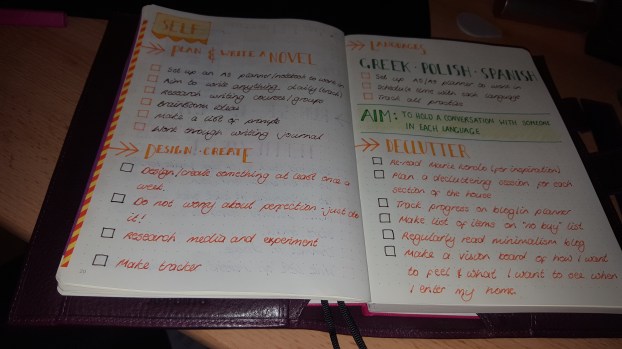 SELF
PLAN & WRITE A NOVEL
Set up an A5 planner/notebook to work in
Aim to write anything daily (track)
Research writing courses/groups
Brainstorm ideas
Make a list of prompts
Work through writing journal
DESIGN · CREATE
Design/create something at least once a
week.
Do not worry about perfection - just do
it!
Research media and experiment
Make tracker
LANGUAGES
GREEK · POLISH · SPANISH
Set up A5/ planner to work in
Schedule time with each language
Track all practice
AIM: TO HOLD A CONVERSATION WITH SOMEONE
IN EACH LANGUAGE
DECLUTTER
Re-read Marie Kondo (for inspiration)
Plan a decluttering session for each
section of the house
Track progress on blog/in planner
Make list of items on "no buy" list
Regularly read minimalism blog
Make a vision board of how I want
to feel & what I want to see when
I enter my home.